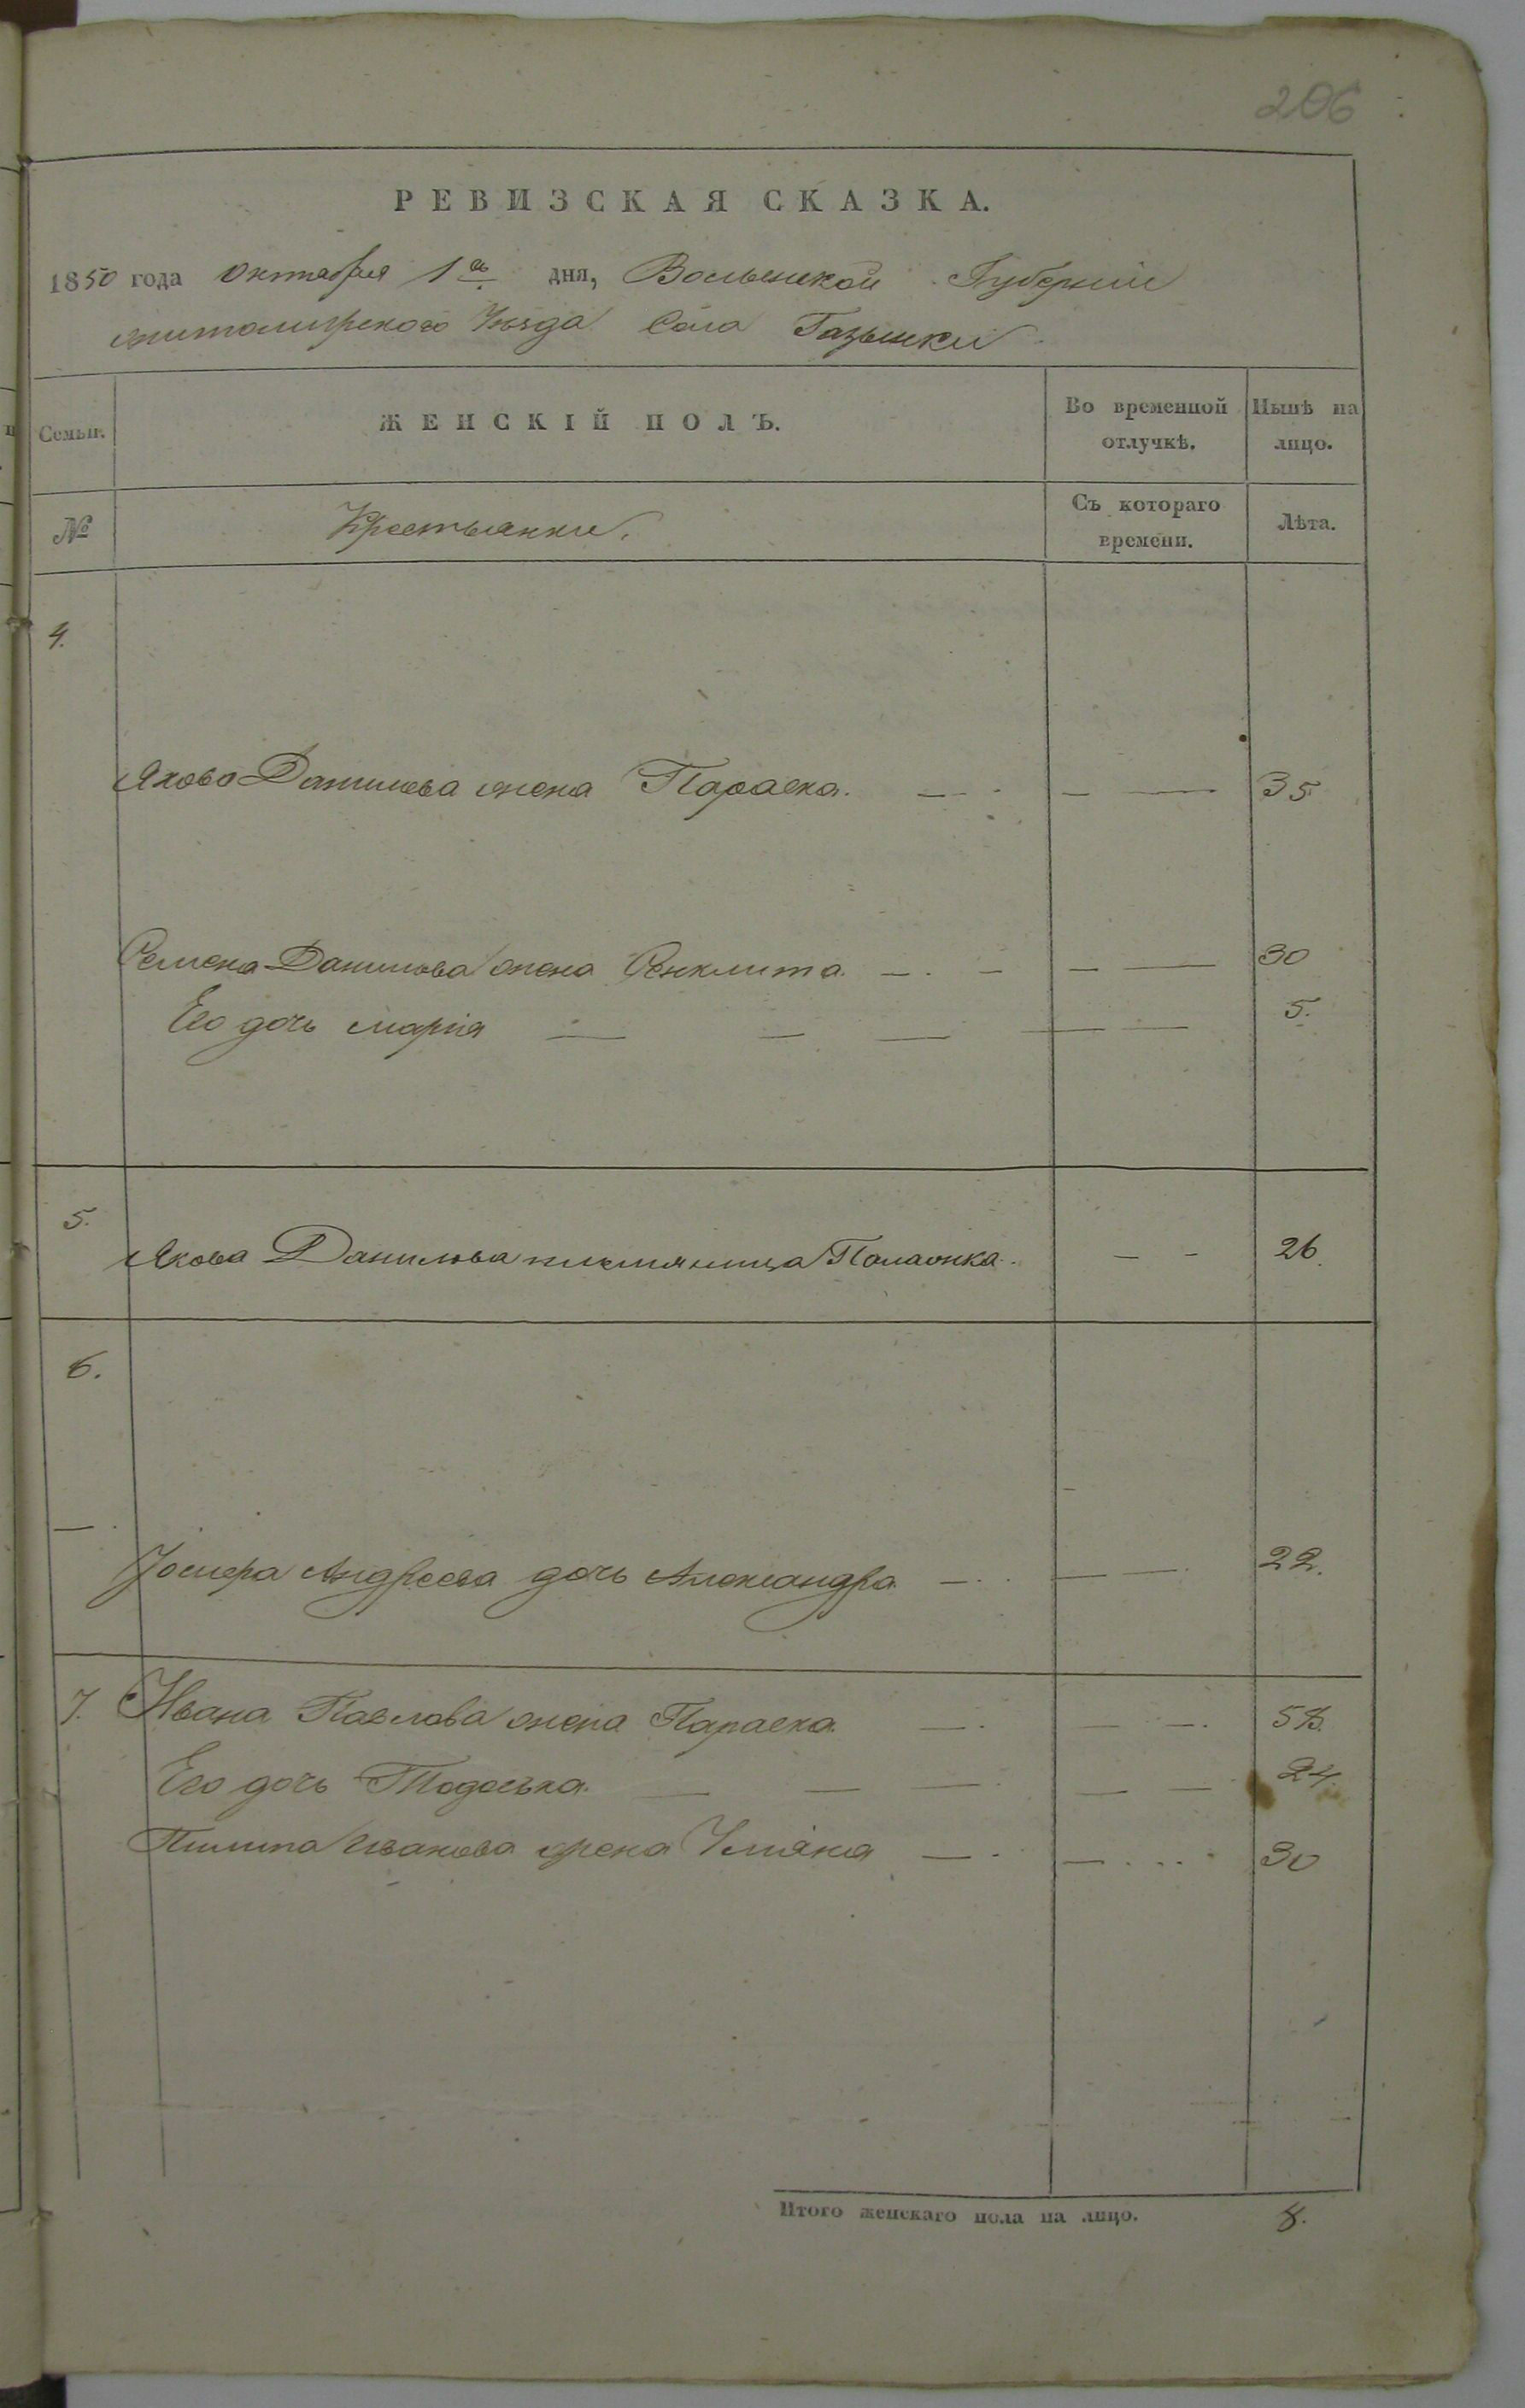 206
РЕВИЗСКАЯ СКАЗКА.
1850 года Октября 1го дня, Волынской Губернии
Житомирского Уѣзда Села Газынки
Семьи. ЖЕНСКІЙ ПОЛЪ. Во временной отлучкѣ. Нынѣ на лицо.
№ Крестьянки. Съ котораго времени. Лѣта.
4.
Якова Данилова жена Параска. 35
Семена Данилова жена 30
Его дочь Марія 5.
5.
Якова Данилова племяница 26.
6.
Андреева дочь Александра 22.
7. Ивана Павлова жена Параска 58.
Его дочь Тодоська. 24.
Пилипа Иванова жена Улiяна 30
Итого женскаго пола на лицо. 8.